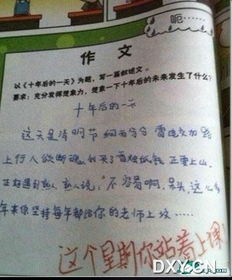 呃……
作 文
以《十年后的一天》为题,写一篇叙述文。
要求:充分发挥想象力,想象一下十年后的未来发生了什么?
十年后的一天
这天是清明节 细雨纷纷 雷电交加 路
上行人欲断魂 我买了 正要上山,
正好遇到熟人 熟人说:"不容易啊,呆头 这么多
年来你坚持每年都给你的老师上坟……
这个星期你站着上课
DXY.CN